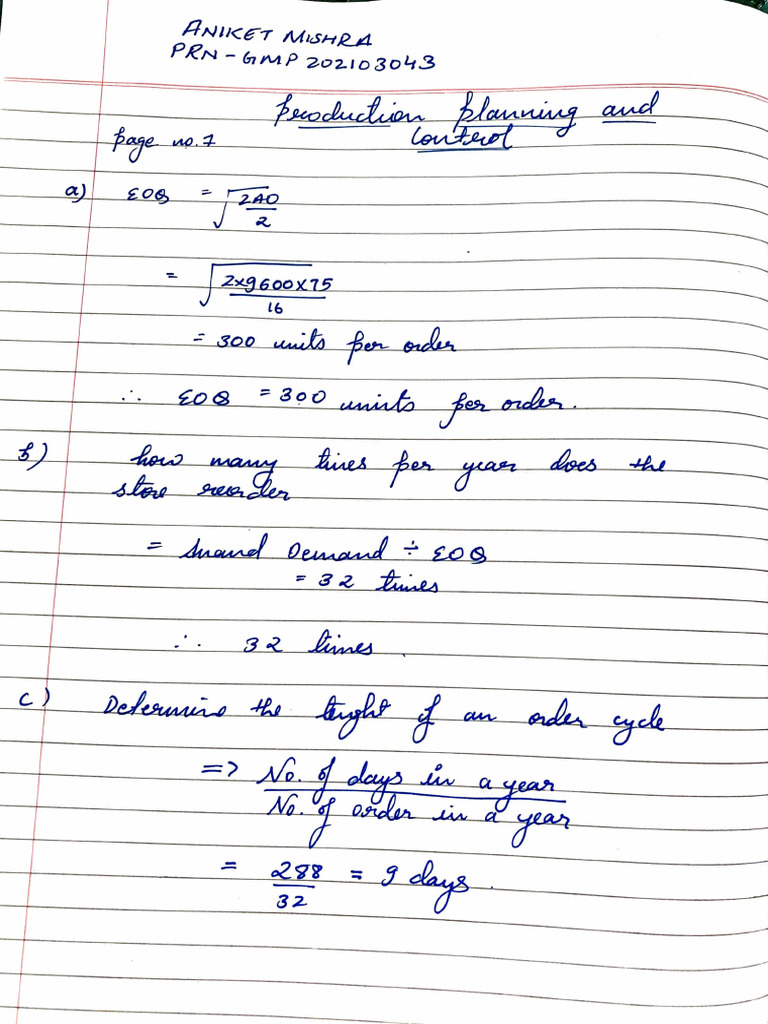 ANIKET MISHRA
PRN - GMP 202103043
Production Planning and
Control
Page no. 7
a) EOQ = √2AO/2
= √2×9600×75/16
= 300 units per order
∴ EOQ = 300 units per order.
b) how many times per year does the
store reorder
= Demand ÷ EOQ
= 32 times
∴ 32 times.
c) Determine the of an order cycle
=> No. of days in a year
No. of order in a year
= 288/32 = 9 days.